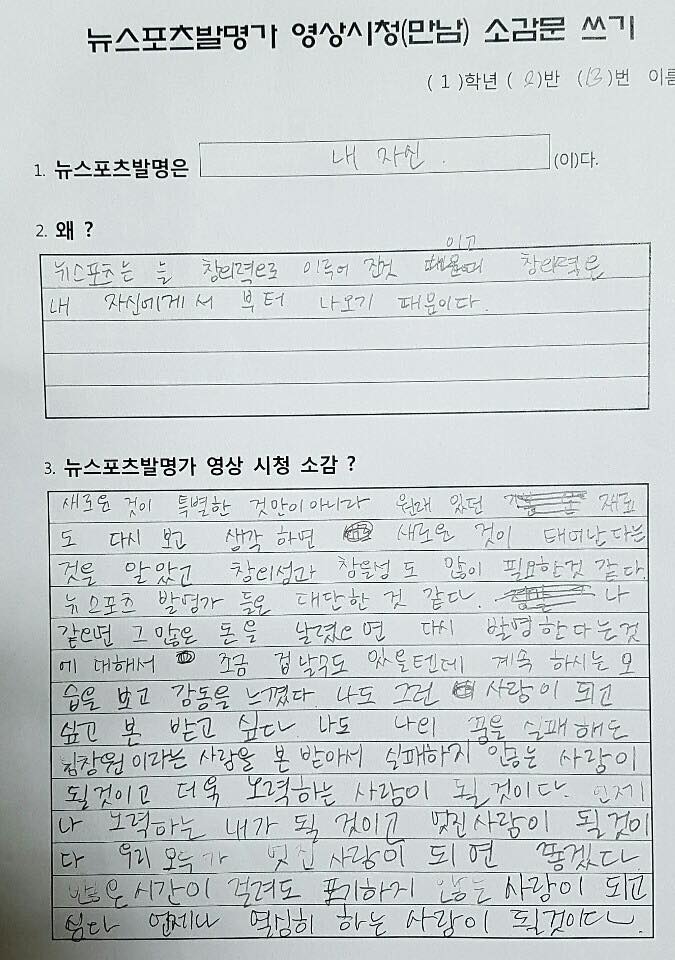 뉴스포츠발명가 영상시청(만남) 소감문 쓰기
( 1 )학년 ( 2 )반 (13)번 이름
1. 뉴스포츠발명은 내 자신. (이)다.
2. 왜 ?
이고
뉴스포츠는 늘 창의력으로 이루어 진것 창의력은
내 자신에게서 부터 나오기 때문이다.
3. 뉴스포츠발명가 영상 시청 소감 ?
새로운 것이 특별한 것만이아니라 원래 있던 재료
도 다시 보고 생각 하면 새로운 것이 태어난다는
것을 알았고 창의성과 참을성도 많이 필요한것 같다.
뉴스포츠 발명가 들은 대단한 것 같다. 나
같으면 그 많은 돈을 날렸으면 다시 발명한다는것
에 대해서 조금 겁날수도 있을텐데 계속 하시는 모
습을 보고 감동을 느꼈다. 나도 그런 사람이 되고
싶고 본 받고 싶다. 나도 나의 꿈을 실패해도
김창원이라는 사람을 본 받아서 실패하지 않는 사람이
될것이고 더욱 노력하는 사람이 될것이다. 언제
나 노력하는 내가 될 것이고 멋진사람이 될것이
다 우리 모두가 멋진 사람이 되면 좋겠다.
많은시간이 걸려도 포기하지 않는 사람이 되고
싶다 언제나 열심히 하는 사람이 될것이다.